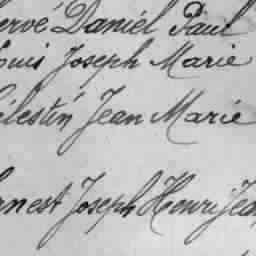 ervé Daniel Paul
ouis Joseph Marie
élestin Jean Marie
rnest Joseph Henri Jea